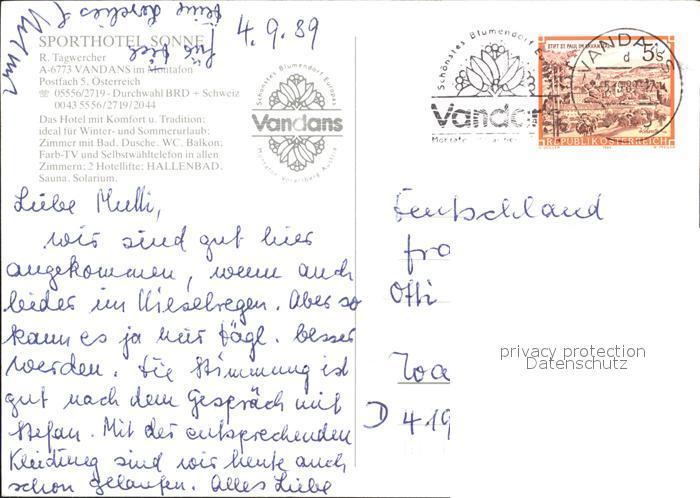 SPORTHOTEL SONNE
R. Tagwercher
A-6773 VANDANS im Montafon
Postfach 5, Österreich
☎ 05556/2719 - Durchwahl BRD + Schweiz
0043 5556/2719/2044
Das Hotel mit Komfort u. Tradition;
ideal für Winter- und Sommerurlaub;
Zimmer mit Bad, Dusche, WC, Balkon;
Farb-TV und Selbstwähltelefon in allen
Zimmern; 2 Hotellifte; HALLENBAD,
Sauna, Solarium.
Schönstes Blumendorf Europas
Vandans
Montafon Vorarlberg Austria
4.9.89
Schönstes Blumendorf
Vandan
VANDANS
d
STIFT ST. PAUL IM LAVANTTAL
5s
REPUBLIK ÖSTERREICH
Liebe Mutti,
wir sind gut hier
angekommen, wenn auch
leider im Nieselregen. Aber so
kann es ja nur tägl. besser
werden. Die Stimmung ist
gut nach dem Gespräch mit
Stefan. Mit der entsprechenden
Kleidung sind wir heute auch
schon gelaufen. Alles Liebe
für Dich
Deutschland
Fra
Otti
D 419
privacy protection
Datenschutz